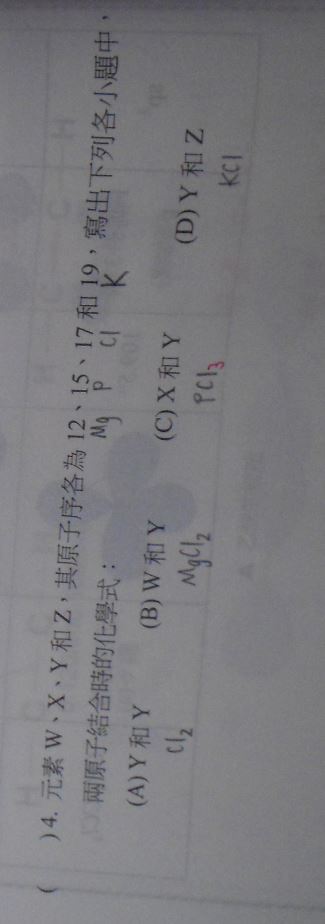 ( ) 4. 元素 W、X、Y 和 Z，其原子序各為 12、15、17 和 19，寫出下列各小題中，
Mg P Cl K
兩原子結合時的化學式：
(A) Y 和 Y (B) W 和 Y (C) X 和 Y (D) Y 和 Z
Cl2 MgCl2 PCl3 KCl